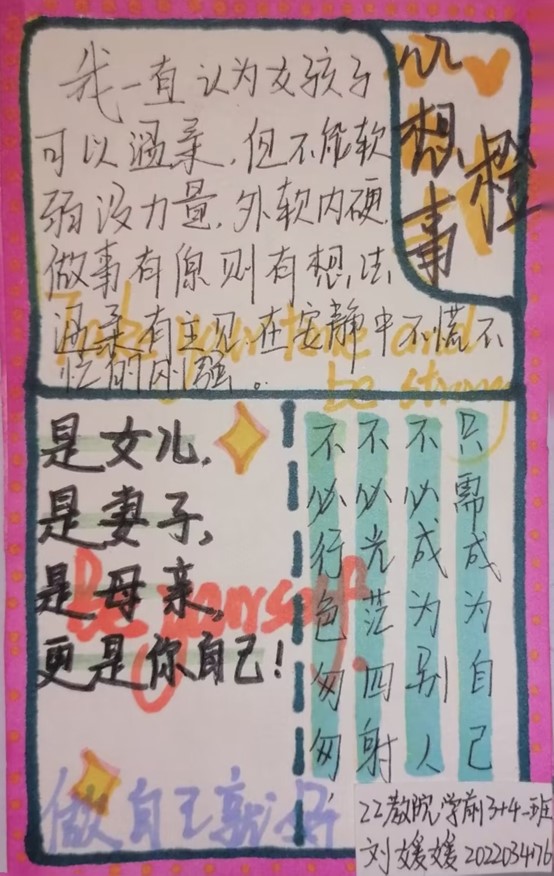 我一直认为女孩子
可以温柔，但不能软
弱没力量，外软内硬
做事有原则有想法
温柔有主见，在安静中不慌不
忙的刚强。
心想事橙
Take your time and
be strong
是女儿，
是妻子，
是母亲，
更是你自己！
Be yourself.
不必行色匆匆
不必光茫四射
不必成为别人
只需成为自己
做自己就好
22教院学前3+4一班
刘媛媛 2022034076